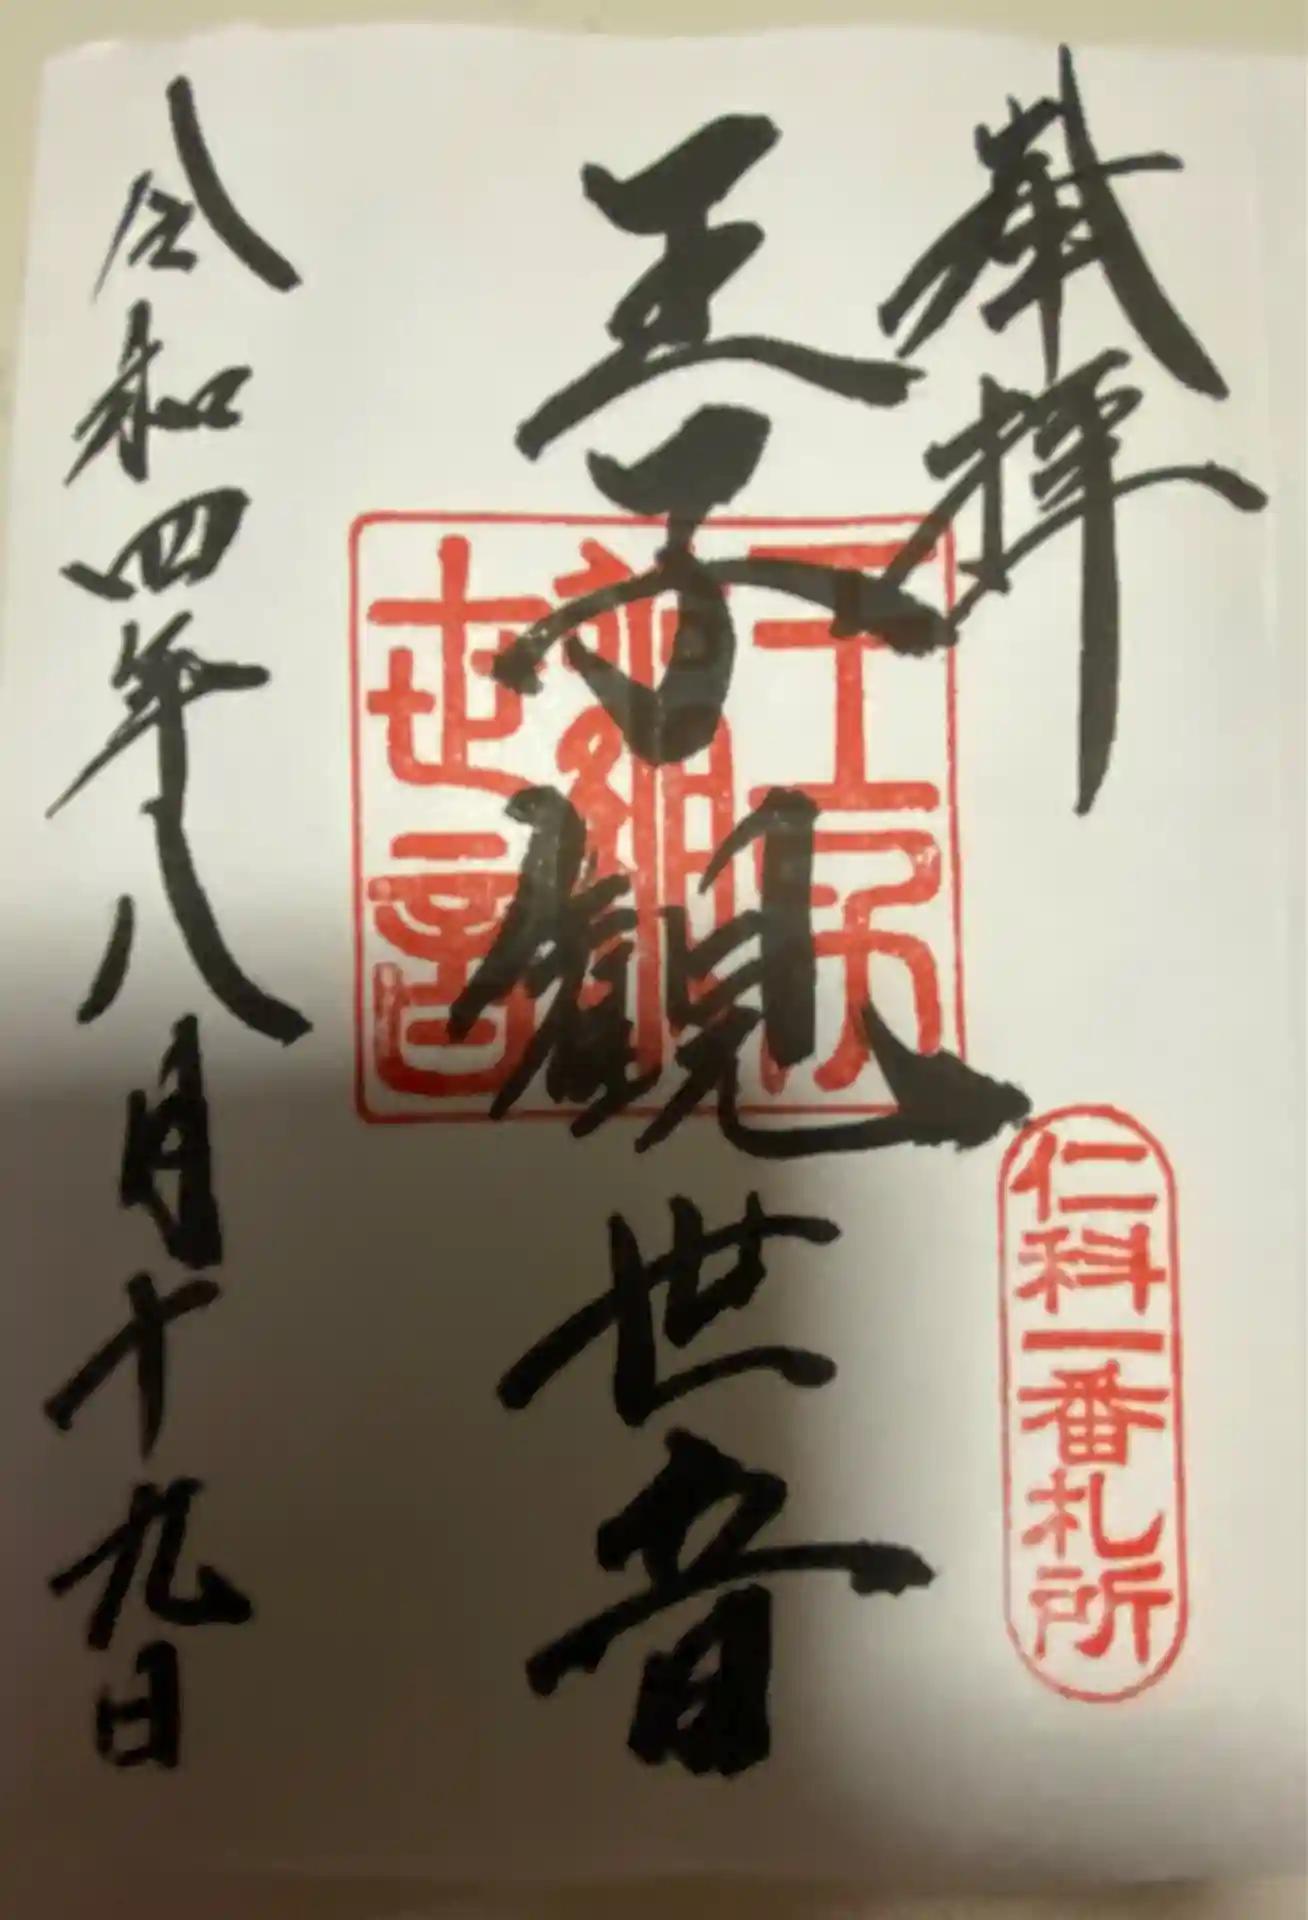 奉拝
仁科一番札所
王子観世音
王子
観
世音
令和四年八月十九日